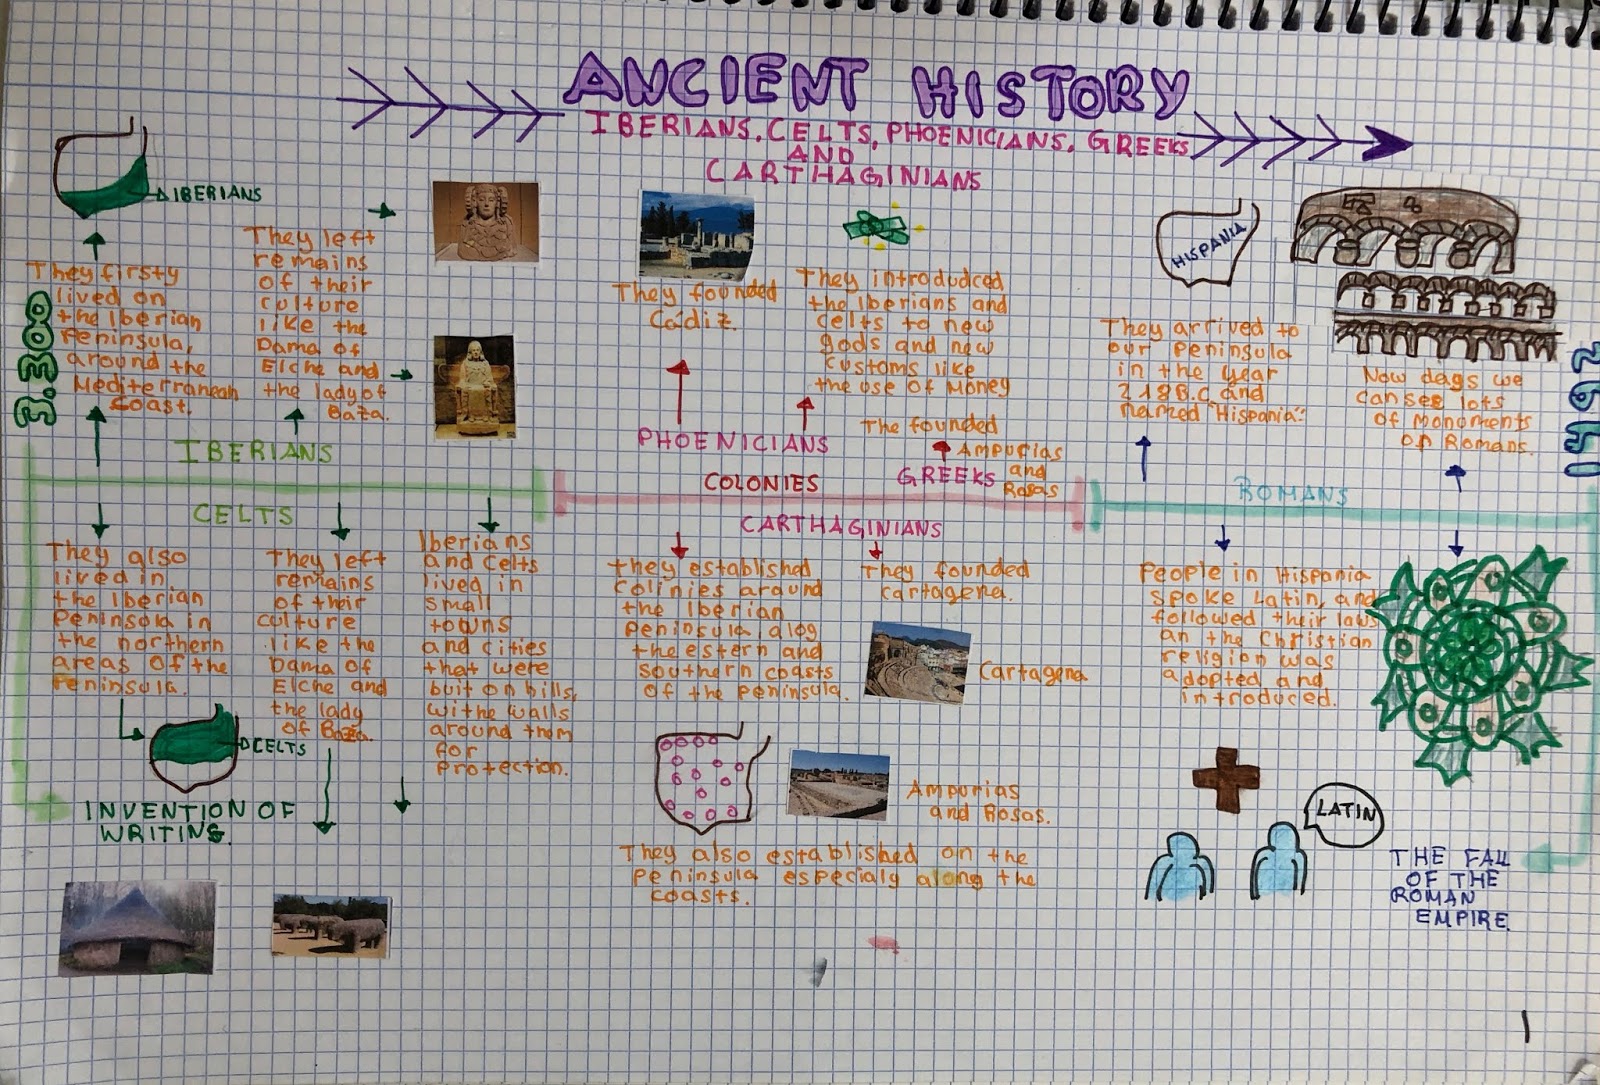 ANCIENT HISTORY
IBERIANS, CELTS, PHOENICIANS, GREEKS
AND
CARTHAGINIANS
IBERIANS
3.300
They firsty
lived on
the Iberian
Peninsula,
around the
Mediterranean
coast.
They left
remains
of their
culture
like the
Dama of
Elche and
the lady of
Baza.
IBERIANS
They founded
Cádiz.
They introdudced
the Iberians and
celts to new
gods and new
customs like
the use of Money
PHOENICIANS
The founded
Ampurias
and
Rosas
GREEKS
COLONIES
HISPANIA
They arrived to
our Peninsula
in the year
218B.C. and
named "Hispania".
Now days we
can see lots
of monuments
of Romans.
1492
ROMANS
CELTS
They also
lived in
the Iberian
Peninsola in
the northern
areas of the
Peninsula.
CELTS
INVENTION OF
WRITING.
They left
remains
of their
culture
like the
Dama of
Elche and
the lady
of Baza.
Iberians
and celts
lived in
small
towns
and cities
that were
buit on hills,
withe walls
around them
for
protection.
CARTHAGINIANS
they established
colinies around
the Iberian
Peninsula alog
the estern and
southern coasts
of the peninsula.
They founded
cartagena.
Cartagena
Ampurias
and Rosas.
They also established on the
Peninsula especialy along the
coasts.
People in Hispania
spoke Latin, and
followed their laws
an the Christian
religion was
adopted and
introduced.
LATIN
THE FALL
OF THE
ROMAN
EMPIRE.
1